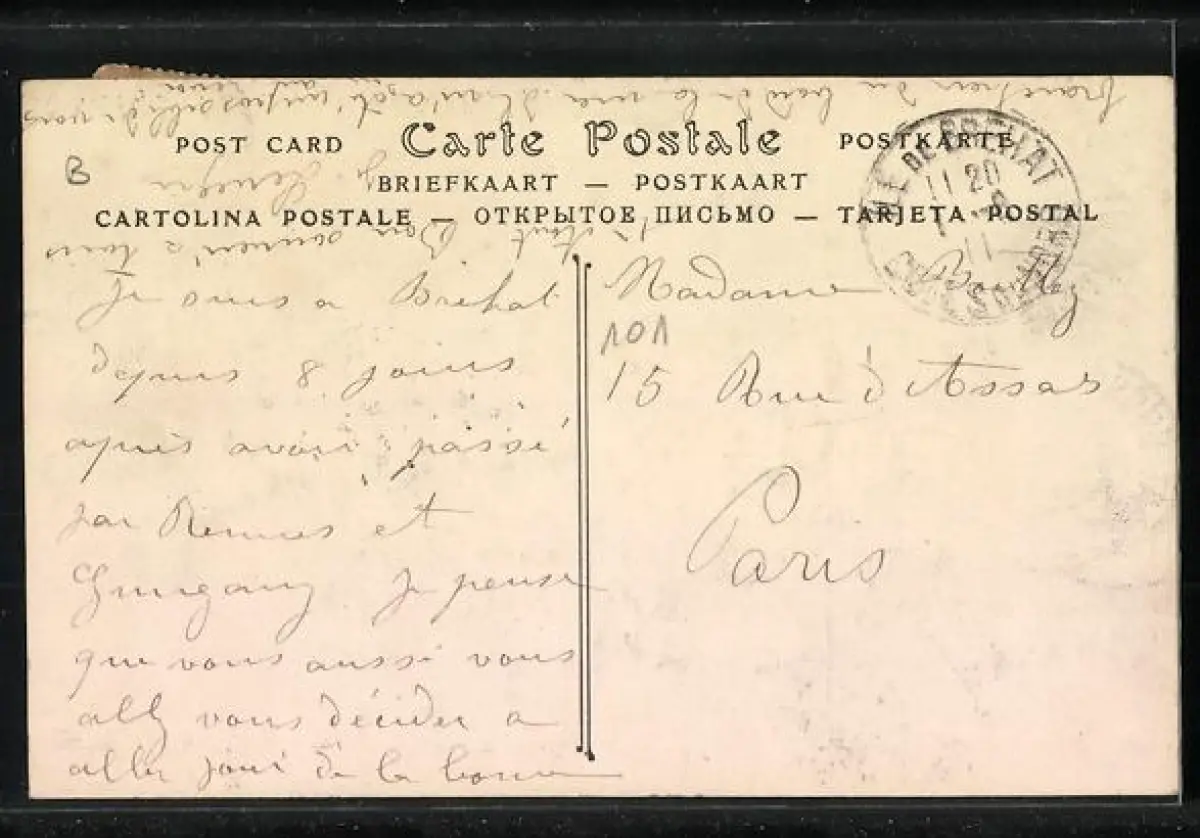 B
POST CARD Carte Postale POSTKARTE
BRIEFKAART — POSTKAART
CARTOLINA POSTALE — ОТКРЫТОЕ ПИСЬМО — TARJETA POSTAL
ILE DE BREHAT
11 20
11
Je suis a Bréhat
depuis 8 jours
après avoir passé
par Rennes et
Guingamp Je pense
que vous aussi vous
allz vous décider a
aller jouir de la bonne
fraicheur du bord de la mer
Bon souvenir a tous
Madame
101
15 Rue d'Assas
Paris